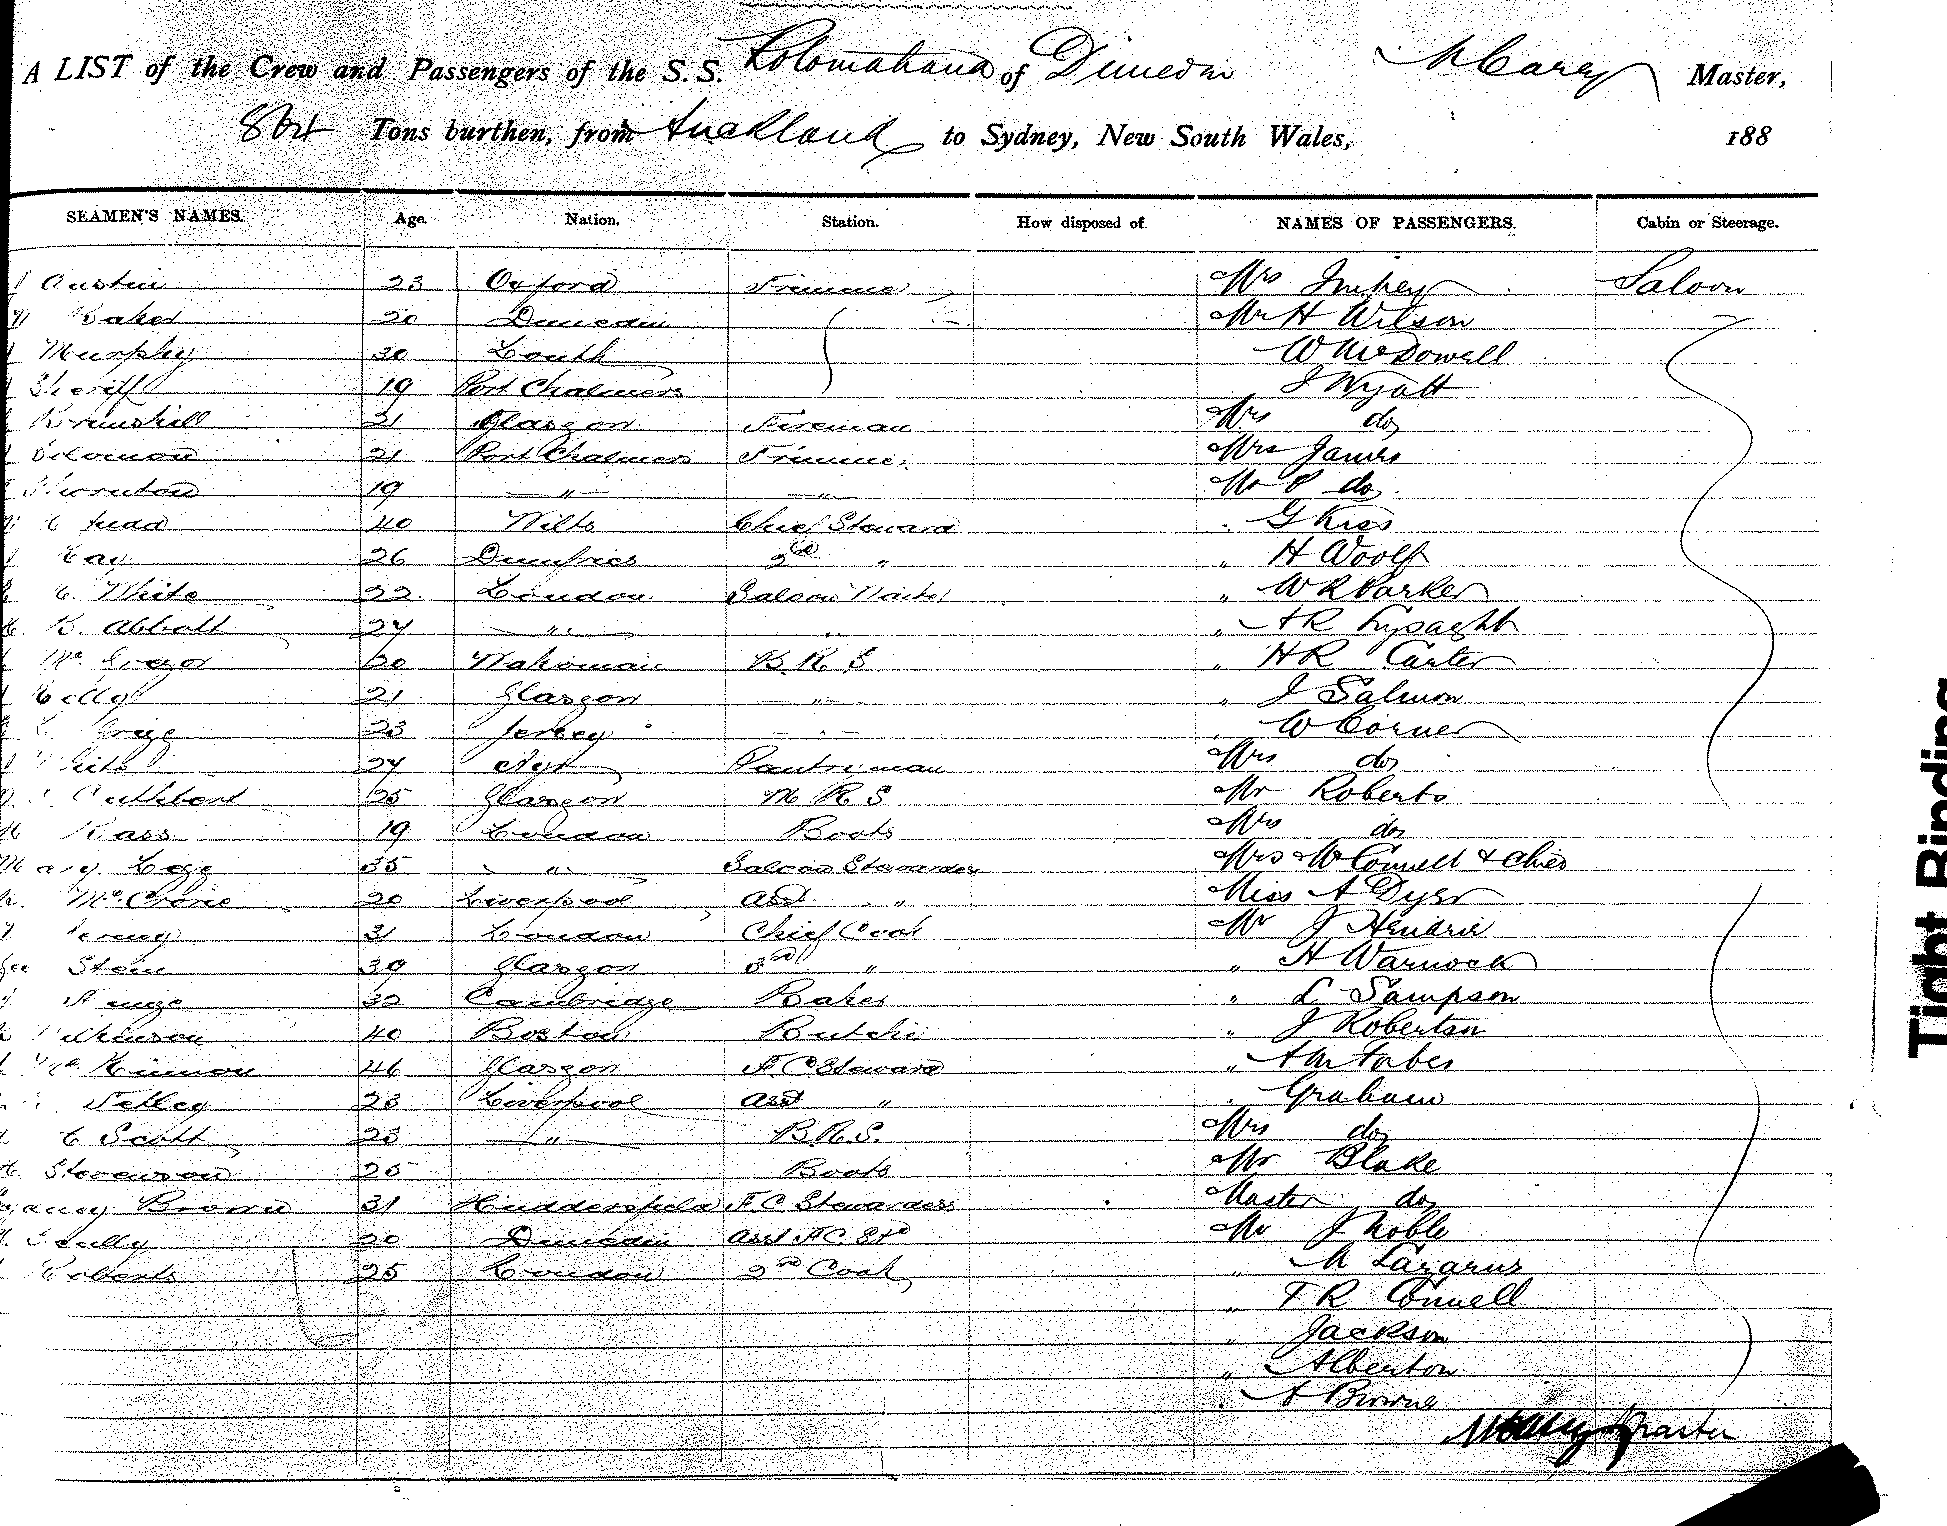 A LIST of the Crew and Passengers of the S.S. Rotomahana of Dunedin M Carey Master,
864 Tons burthen, from Auckland to Sydney, New South Wales, 188
SEAMEN'S NAMES. Age. Nation. Station. How disposed of. NAMES OF PASSENGERS. Cabin or Steerage.
Austin 23 Oxford Trimmer Mrs Saloon
Baker 20 Dunedin Mr H Wilson
Murphy 30 Louth W McDowell
Sheriff 19 Port Chalmers J Wyatt
21 Glasgow Fireman Mrs do
Solomon 21 Port Chalmers Trimmer Mrs James
Thornton 19 " " Mr P do
40 Wilts Chief Steward G Kiss
Kay 26 Dumfries 2nd " " H Woolf
White 22 London Saloon Waiter " W R Parker
B. Abbott 27 " " " A R Lysaght
Mc Gregor 20 B.R.S " H R Carter
Kelly 21 Glasgow " " J Salmon
23 Jersey " W Corner
White 27 Ayr Pantryman Mrs do
Cuthbert 25 Glasgow M R S Mr Roberts
Kass 19 London Boots Mrs do
Mary 35 " Saloon Stewardess Mrs McConnell & Chies
McCrorie 20 Liverpool Asst " Miss A Dyer
31 London Chief Cook Mr J Hendrie
Geo Stein 39 Glasgow 3rd " " H Warnock
32 Cambridge Baker " L Sampson
Wilkinson 40 Boston Butcher " J Robertson
McKinnon 46 Glasgow F.C Steward " A M Forbes
23 Liverpool Asst " " Graham
C Scott 23 " B.R.S. Mrs do
Stevenson 25 Boots Mr Blake
Nancy Brown 31 Huddersfield F.C Stewardess Master do
Scully 20 Dunedin Asst F.C. Std Mr J Noble
Roberts 25 London 2nd Cook " M Lazarus
" T R Connell
" Jackson
" Alberton
" A Browne
M Carey Master
Tight Binding